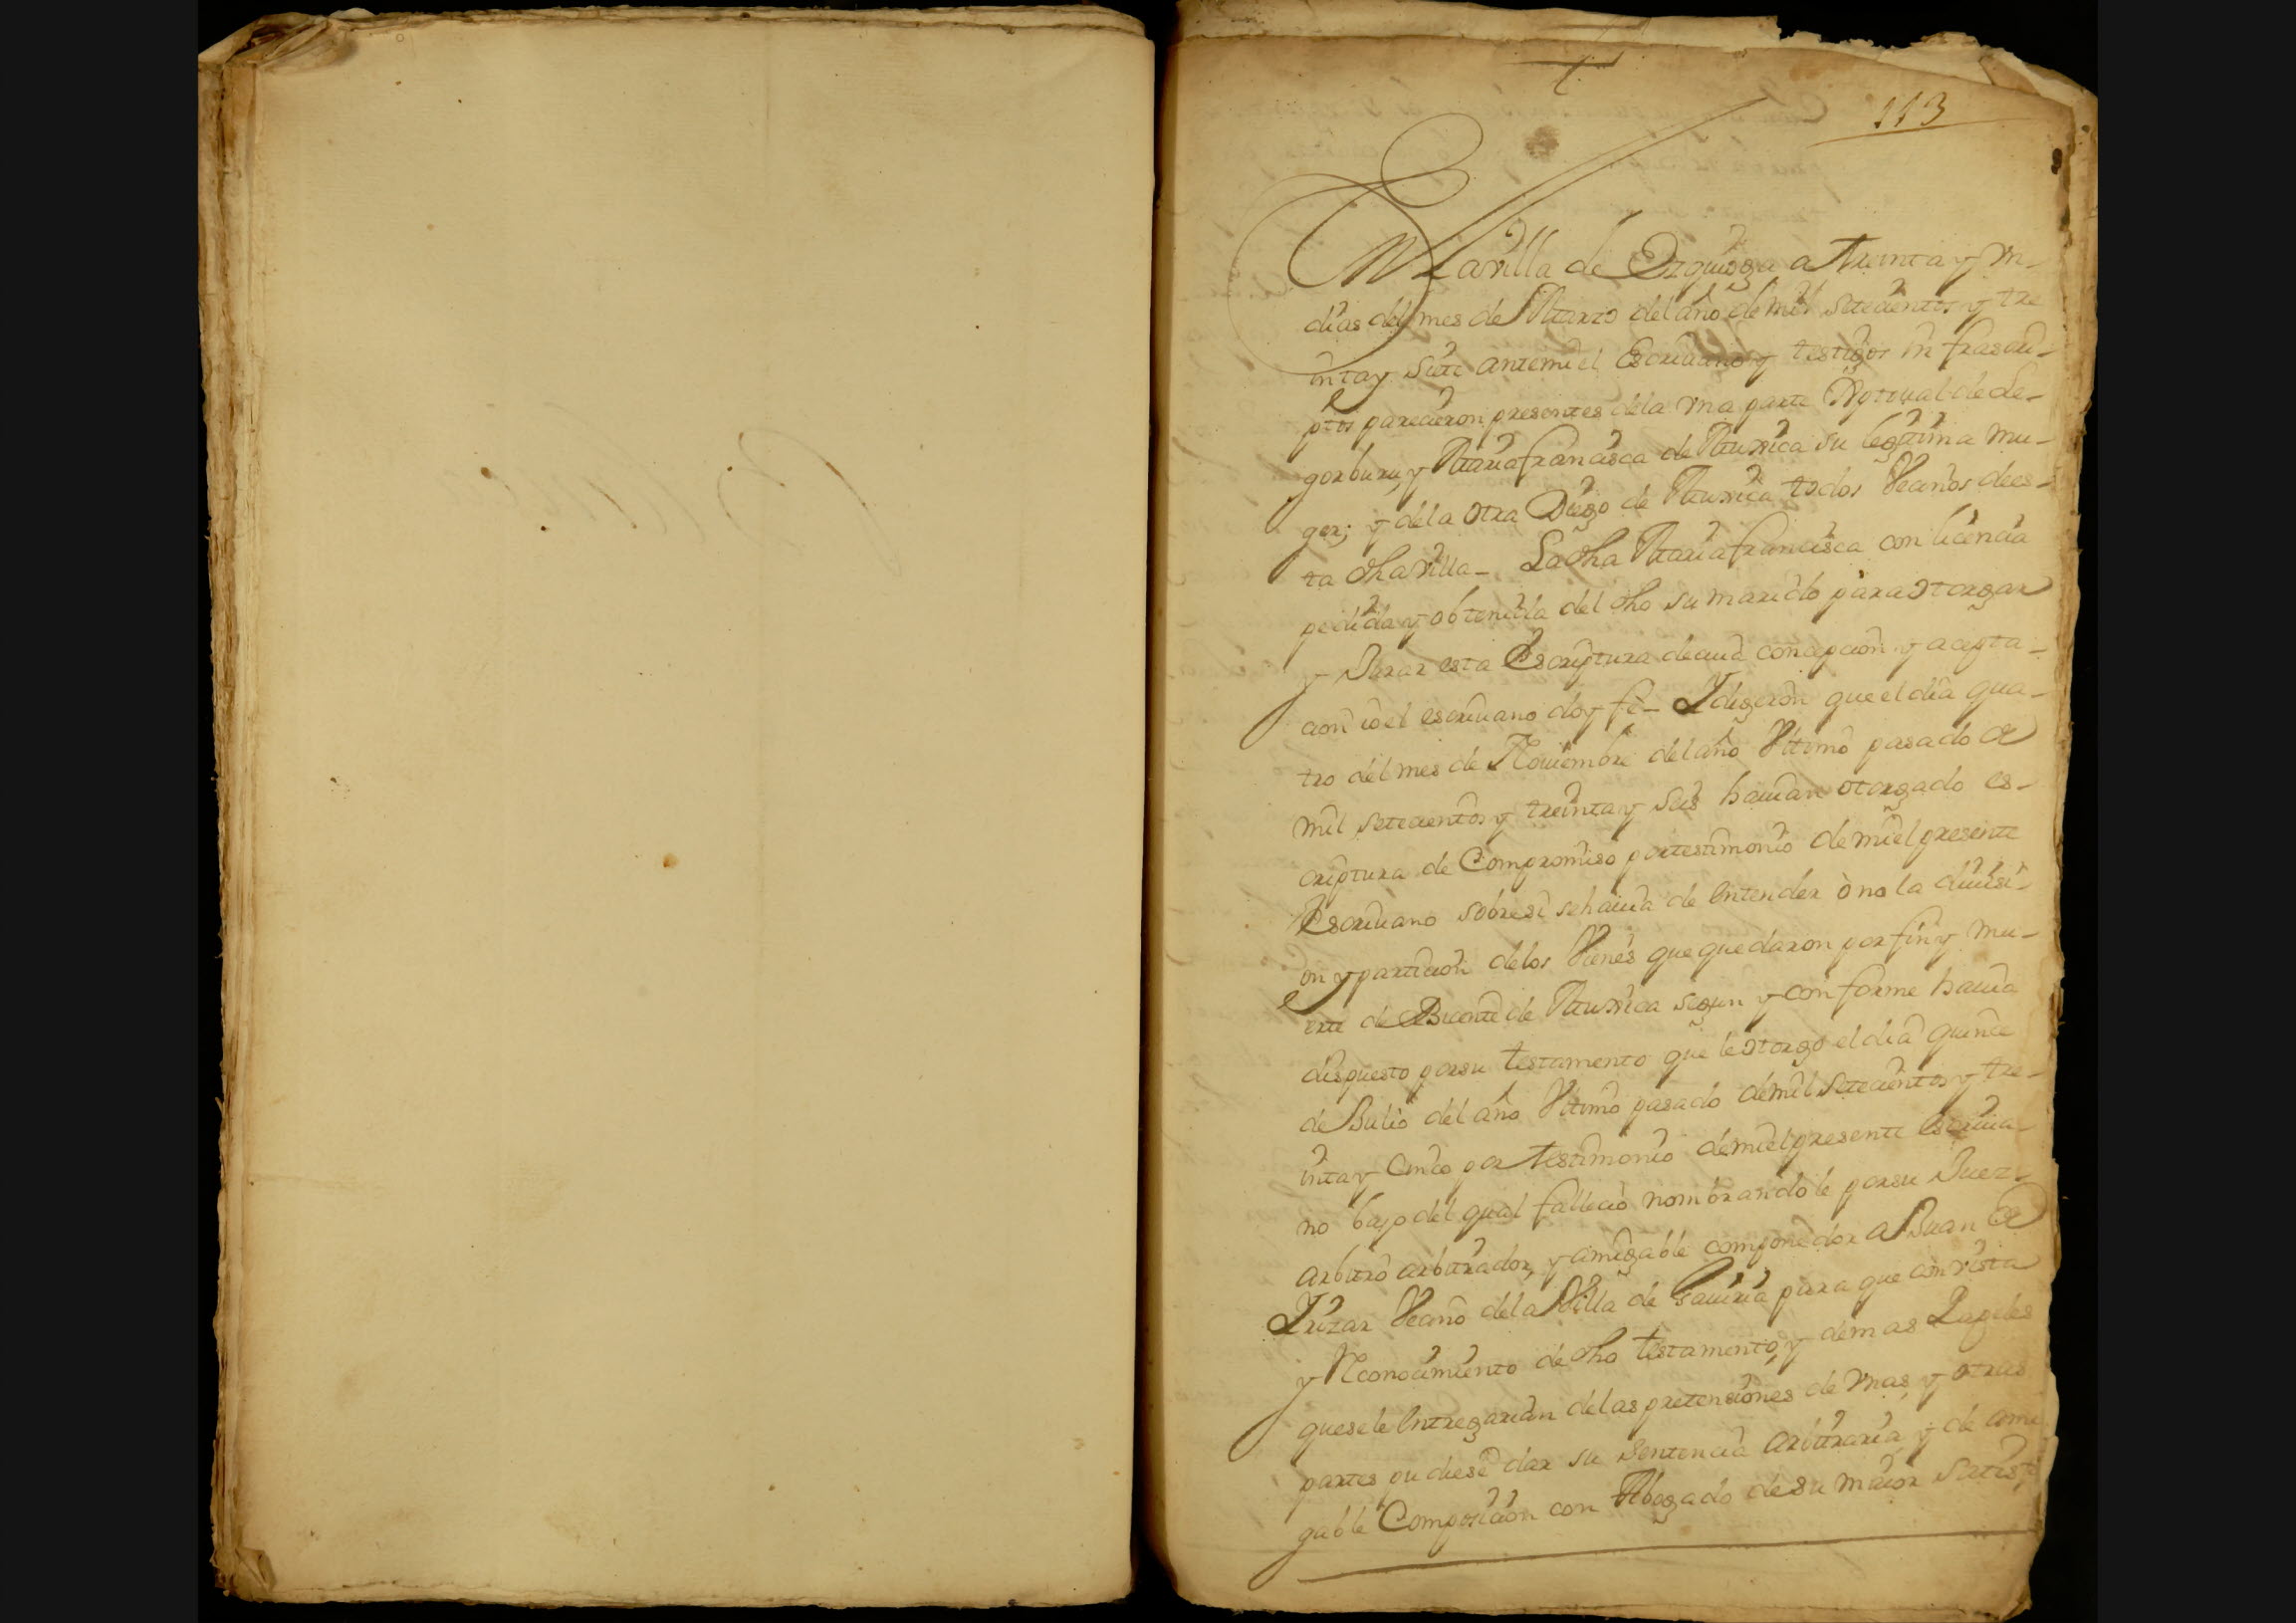 113
En la villa de Ezquioga a treinta y un
dias del mes de Marzo del año de mil setecientos y tre
inta y siete ante mi el Escriuano y testigos infrascri-
ptos parecieron presentes de la vna parte Xptoual de Le-
gorburu, y Maria francisca de Muxica su legitima mu-
ger; y de la otra Diego de Muxica todos Vecinos de es-
ta dha villa - La dha Maria francisca con licencia
pedida y obtenida del dho su marido para otorgar
y Jurar esta Escriptura de cuia concepcion y acepta-
cion io el escriuano doy fe - Y digeron que el dia qua-
tro del mes de Nouiembre del año Vltimo pasado de
mil setecientos y treinta y seis hauian otorgado es-
criptura de Compromiso por testimonio de mi el presente
Escriuano sobre si se hauia de entender ò no la diuisi-
on y particion de los Vienes que quedaron por fin y mu-
erte de Bicente de Muxica segun y conforme hauia
dispuesto por su testamento que le otorgo el dia quince
de Julio del año Vltimo pasado de mil setecientos y tre-
inta y cinco por testimonio de mi el presente escriua-
no bajo del qual fallecio nombrandole por su Juez
arbitro arbitrador, y amigable componedor a Juan de
Yrizar Vecino de la Villa de Gauiria para que con vista
y Reconocimiento de dho testamento, y demas Papeles
que se le entregarian de las pretensiones de vnas, y otras
partes pudiese dar su sentencia arbitraria, y de ami
gable Composicion con Abogado de su maior satisf